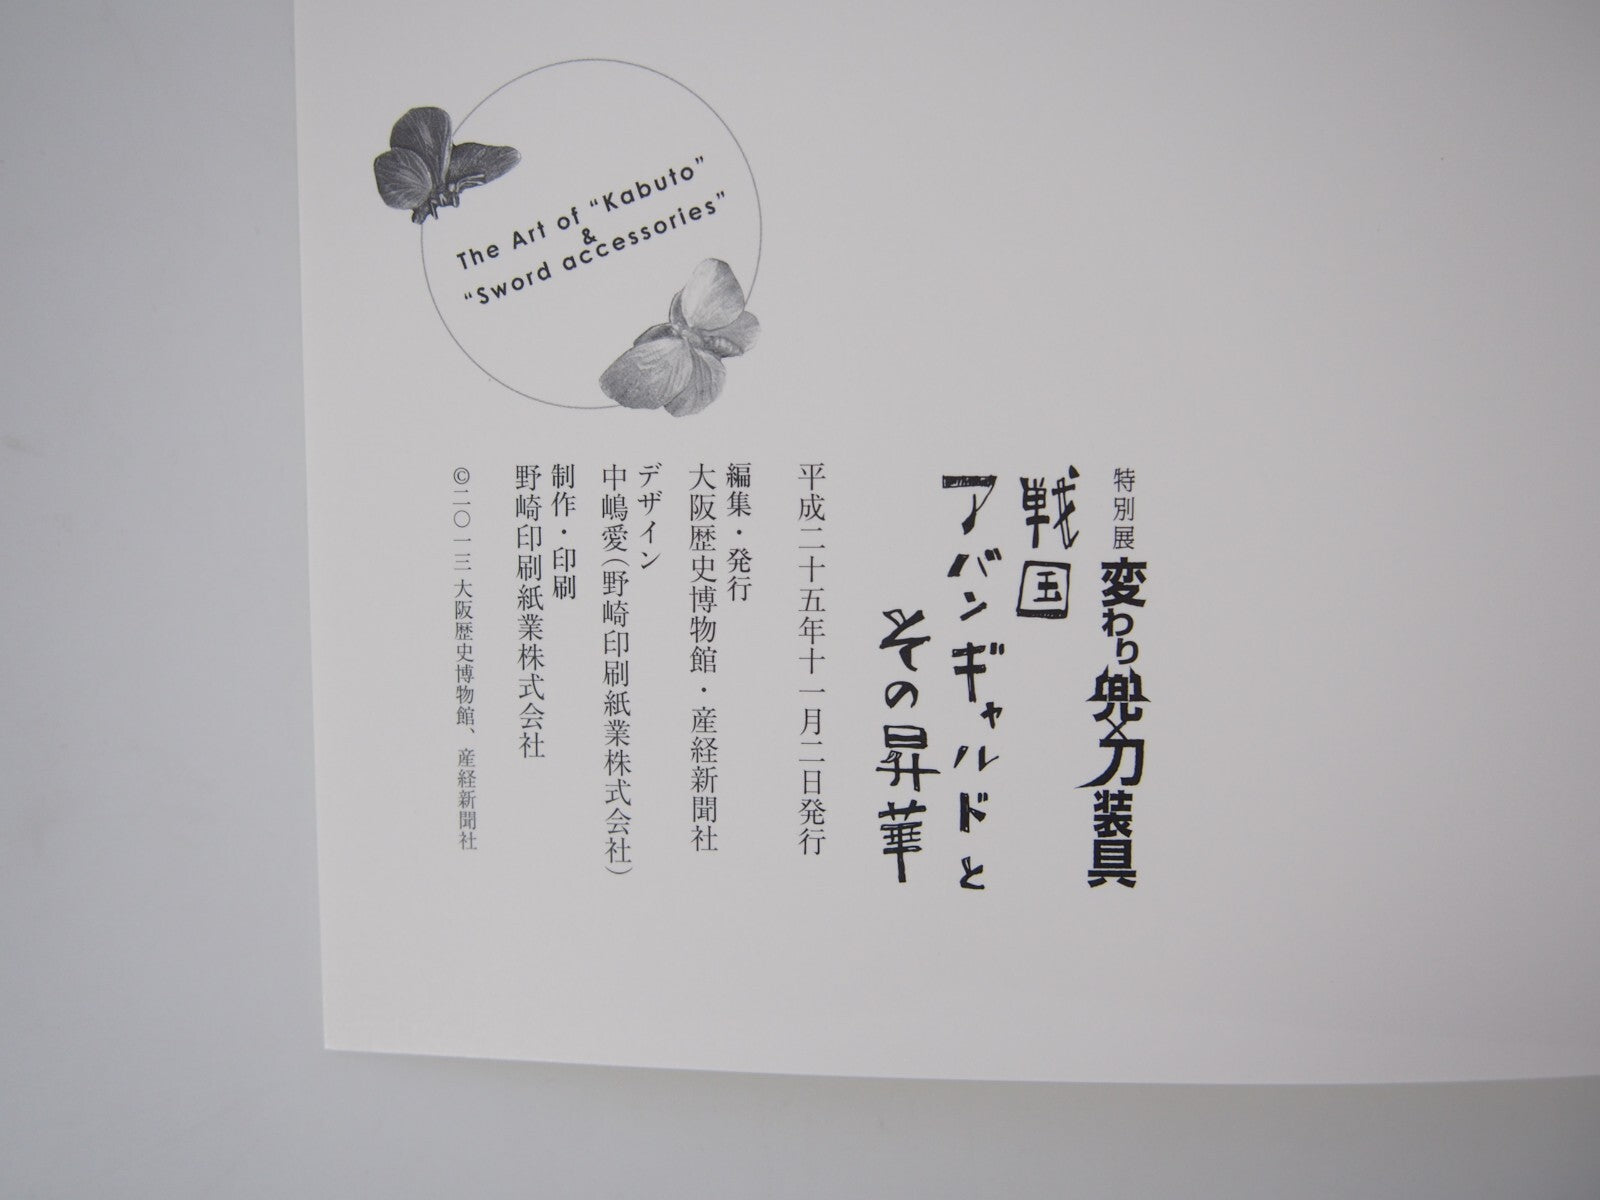 特別展 変わり兜×刀装具
戦国
アバンギャルドと
その昇華
平成二十五年十一月二日発行
編集・発行
大阪歴史博物館・産経新聞社
デザイン
中嶋愛(野崎印刷紙業株式会社)
制作・印刷
野崎印刷紙業株式会社
©二〇一三 大阪歴史博物館、産経新聞社
The Art of “Kabuto”
&
“Sword accessories”